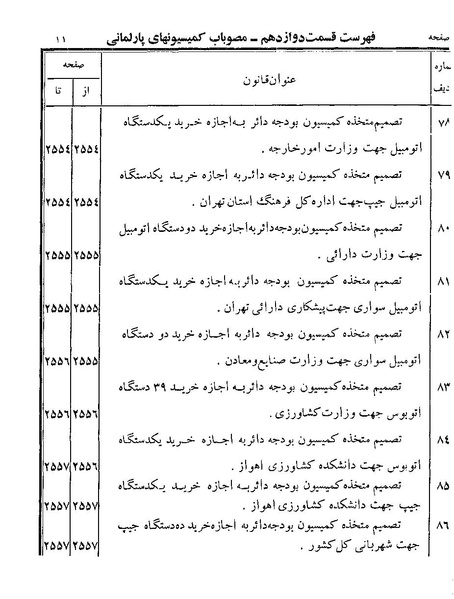 صفحه فهرست قسمت دوازدهم ــ مصوبات کمیسیونهای پارلمانی ۱۱
شماره ردیف عنوان قانون صفحه
از تا
۷۸ تصمیم متخذه کمیسیون بودجه دائر به اجازه خرید یکدستگاه
اتومبیل جهت وزارت امور خارجه . ۲۵۵٤ ۲۵۵٤
۷۹ تصمیم متخذه کمیسیون بودجه دائر به اجازه خرید یکدستگاه
اتومبیل جیپ جهت اداره کل فرهنگ استان تهران . ۲۵۵٤ ۲۵۵٤
۸۰ تصمیم متخذه کمیسیون بودجه دائر به اجازه خرید دو دستگاه اتومبیل
جهت وزارت دارائی . ۲۵۵۵ ۲۵۵۵
۸۱ تصمیم متخذه کمیسیون بودجه دائر به اجازه خرید یکدستگاه
اتومبیل سواری جهت پیشکاری دارائی تهران . ۲۵۵۵ ۲۵۵۵
۸۲ تصمیم متخذه کمیسیون بودجه دائر به اجازه خرید دو دستگاه
اتومبیل سواری جهت وزارت صنایع و معادن . ۲۵۵۵ ۲۵۵٦
۸۳ تصمیم متخذه کمیسیون بودجه دائر به اجازه خرید ۳۹ دستگاه
اتوبوس جهت وزارت کشاورزی . ۲۵۵٦ ۲۵۵٦
۸٤ تصمیم متخذه کمیسیون بودجه دائر به اجازه خرید یکدستگاه
اتوبوس جهت دانشکده کشاورزی اهواز . ۲۵۵٦ ۲۵۵۷
۸۵ تصمیم متخذه کمیسیون بودجه دائر به اجازه خرید یکدستگاه
جیپ جهت دانشکده کشاورزی اهواز . ۲۵۵۷ ۲۵۵۷
۸٦ تصمیم متخذه کمیسیون بودجه دائر به اجازه خرید ده دستگاه جیپ
جهت شهربانی کل کشور . ۲۵۵۷ ۲۵۵۷